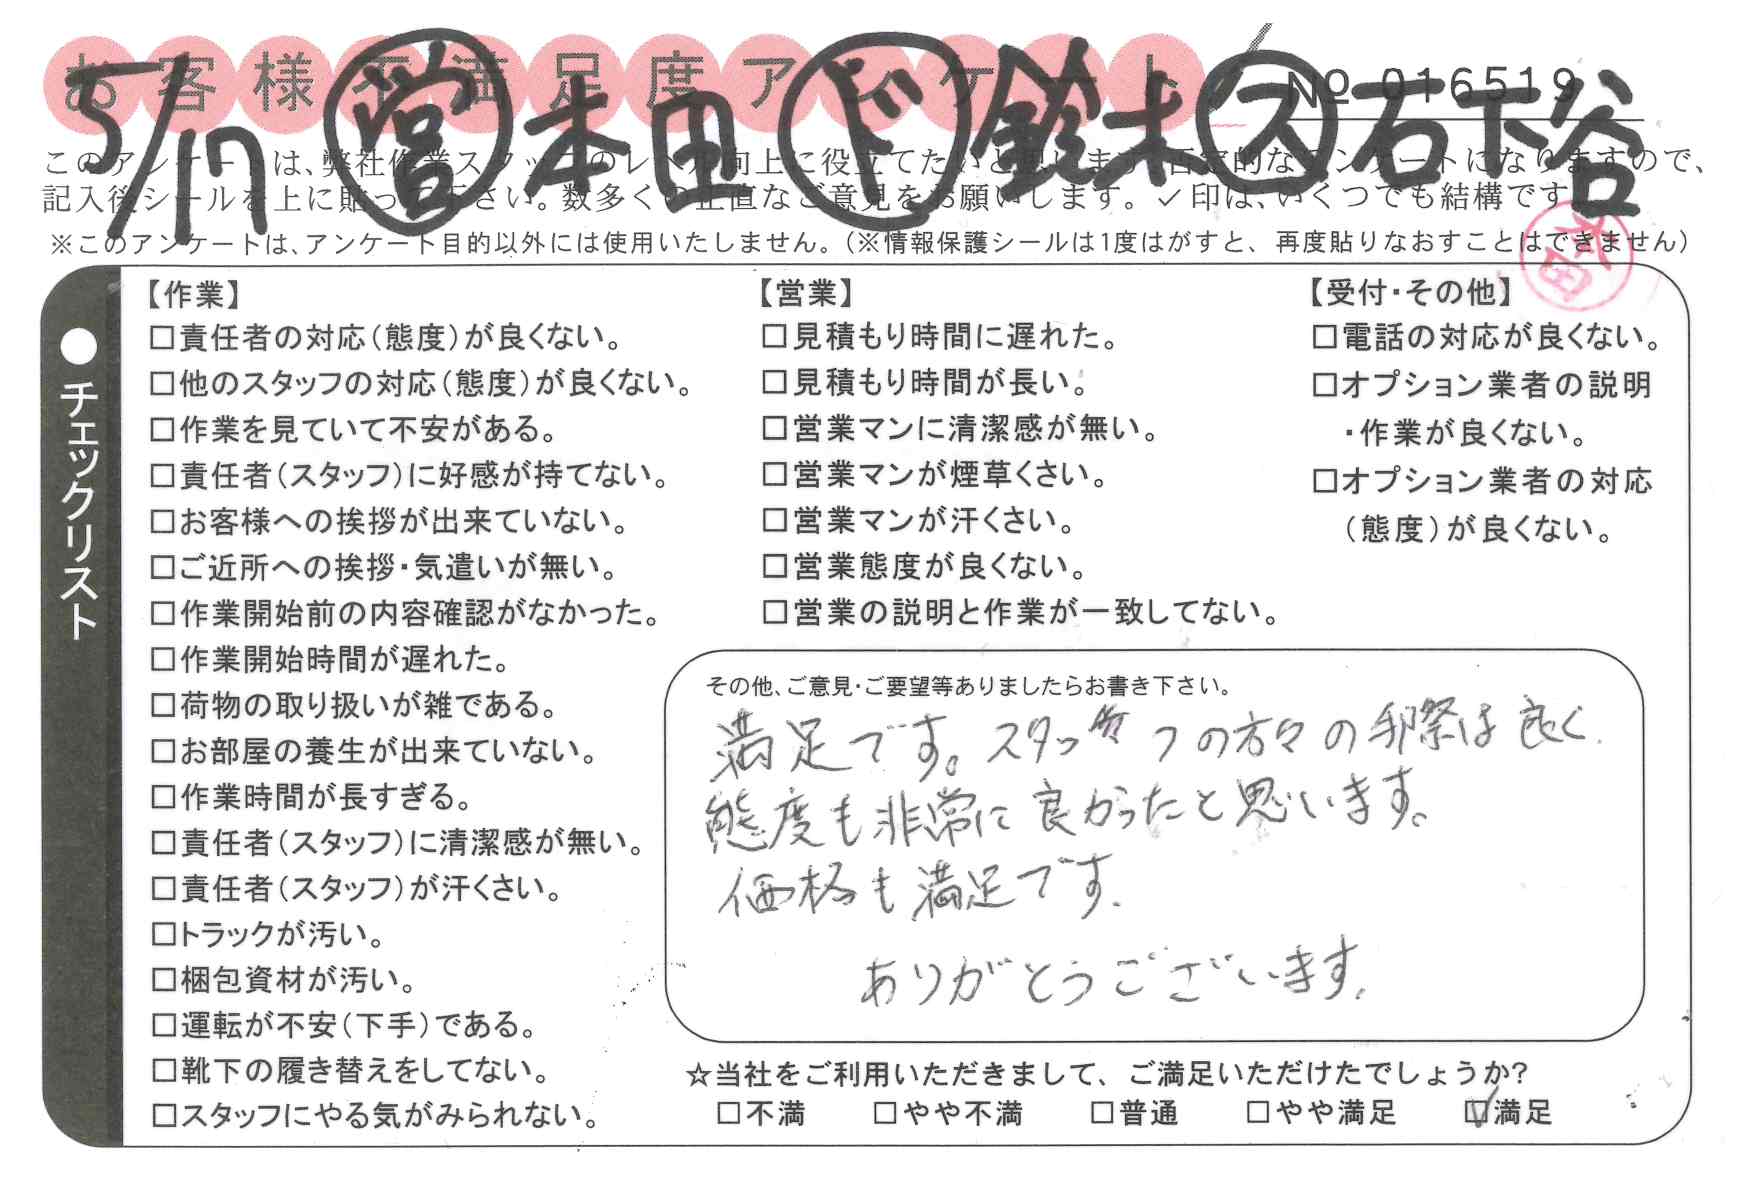 お客様不満足度アンケート
NO 016519
5/17 営 本田 ド 鈴木 ス 石下谷
このアンケートは、弊社作業スタッフのレベル向上に役立てたいと思います。否定的なアンケートになりますので、
記入後シールを上に貼って下さい。数多くの正直なご意見をお願いします。✓印は、いくつでも結構です。
※このアンケートは、アンケート目的以外には使用いたしません。（※情報保護シールは1度はがすと、再度貼りなおすことはできません）
本田
●チェックリスト
【作業】
□責任者の対応（態度）が良くない。
□他のスタッフの対応（態度）が良くない。
□作業を見ていて不安がある。
□責任者（スタッフ）に好感が持てない。
□お客様への挨拶が出来ていない。
□ご近所への挨拶・気遣いが無い。
□作業開始前の内容確認がなかった。
□作業開始時間が遅れた。
□荷物の取り扱いが雑である。
□お部屋の養生が出来ていない。
□作業時間が長すぎる。
□責任者（スタッフ）に清潔感が無い。
□責任者（スタッフ）が汗くさい。
□トラックが汚い。
□梱包資材が汚い。
□運転が不安（下手）である。
□靴下の履き替えをしてない。
□スタッフにやる気がみられない。
【営業】
□見積もり時間に遅れた。
□見積もり時間が長い。
□営業マンに清潔感が無い。
□営業マンが煙草くさい。
□営業マンが汗くさい。
□営業態度が良くない。
□営業の説明と作業が一致してない。
【受付・その他】
□電話の対応が良くない。
□オプション業者の説明
・作業が良くない。
□オプション業者の対応
（態度）が良くない。
その他、ご意見・ご要望等ありましたらお書き下さい。
満足です。スタッフの方々の手際は良く
態度も非常に良かったと思います。
価格も満足です.
ありがとうございます.
☆当社をご利用いただきまして、ご満足いただけたでしょうか?
□不満 □やや不満 □普通 □やや満足 ☑満足